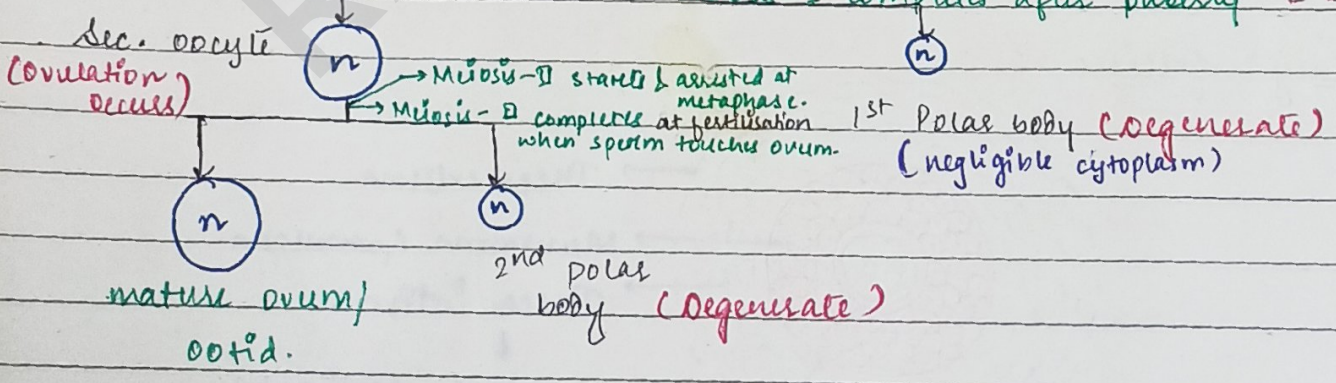 after
Sec. oocyte
n
n
(Ovulation
occurs)
→Meiosis-II starts & arrested at
metaphase.
→Meiosis-II completes at fertilisation
when sperm touches ovum.
1st Polar body (Degenerate)
(negligible cytoplasm)
n
n
2nd polar
body (Degenerate)
mature ovum/
ootid.